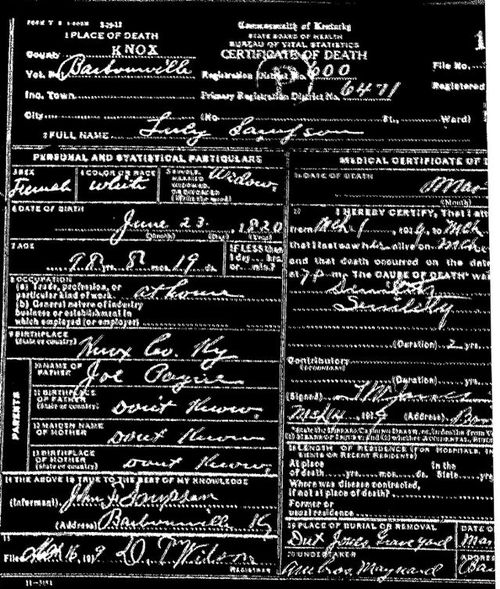 Commonwealth of Kentucky
STATE BOARD OF HEALTH
BUREAU OF VITAL STATISTICS
CERTIFICATE OF DEATH
1 PLACE OF DEATH
County KNOX
Vot. Pct. Barbourville
Registration District No. 600
File No.
Inc. Town
Primary Registration District No. 6471
Registered
City (No. St., Ward)
2 FULL NAME Luly Sampson
PERSONAL AND STATISTICAL PARTICULARS
3 SEX Female
4 COLOR OR RACE white
5 SINGLE MARRIED WIDOWED OR DIVORCED (Write the word) Widow
6 DATE OF BIRTH
June 23, 1830
(Month) (Day) (Year)
7 AGE
yrs. 8 mos. 19 ds.
IF LESS than 1 day hrs. or min.?
8 OCCUPATION
(a) Trade, profession, or particular kind of work at home
(b) General nature of industry business or establishment in which employed (or employer)
9 BIRTHPLACE (State or country) Knox Co. Ky
PARENTS
10 NAME OF FATHER Joe Payne
11 BIRTHPLACE OF FATHER (State or country) Don't Know
12 MAIDEN NAME OF MOTHER Don't Know
13 BIRTHPLACE OF MOTHER (State or country) Don't Know
14 THE ABOVE IS TRUE TO THE BEST OF MY KNOWLEDGE
(Informant) John
(Address) Barbourville Ky
15
Filed 16, 1919
REGISTRAR
11-3151
MEDICAL CERTIFICATE OF
16 DATE OF DEATH
Mar
(Month)
I HEREBY CERTIFY, That I att
from Mch 1, 1919, to Mch
that I last saw her alive on Mch
and that death occurred on the date
at 7 P m. The CAUSE OF DEATH was
Senility
(Duration) 2 yrs.
Contributory
(Duration) yrs.
(Signed)
Mch 14, 1919 (Address) Bar
18 LENGTH OF RESIDENCE (FOR HOSPITALS, IN
At place of death yrs. mos. ds. In the State yrs.
Where was disease contracted, if not at place of death?
Former or usual residence
19 PLACE OF BURIAL OR REMOVAL
DATE O
Jones Grave yard Mar
20 UNDERTAKER
ADDRES
Ambros Maynard Bar